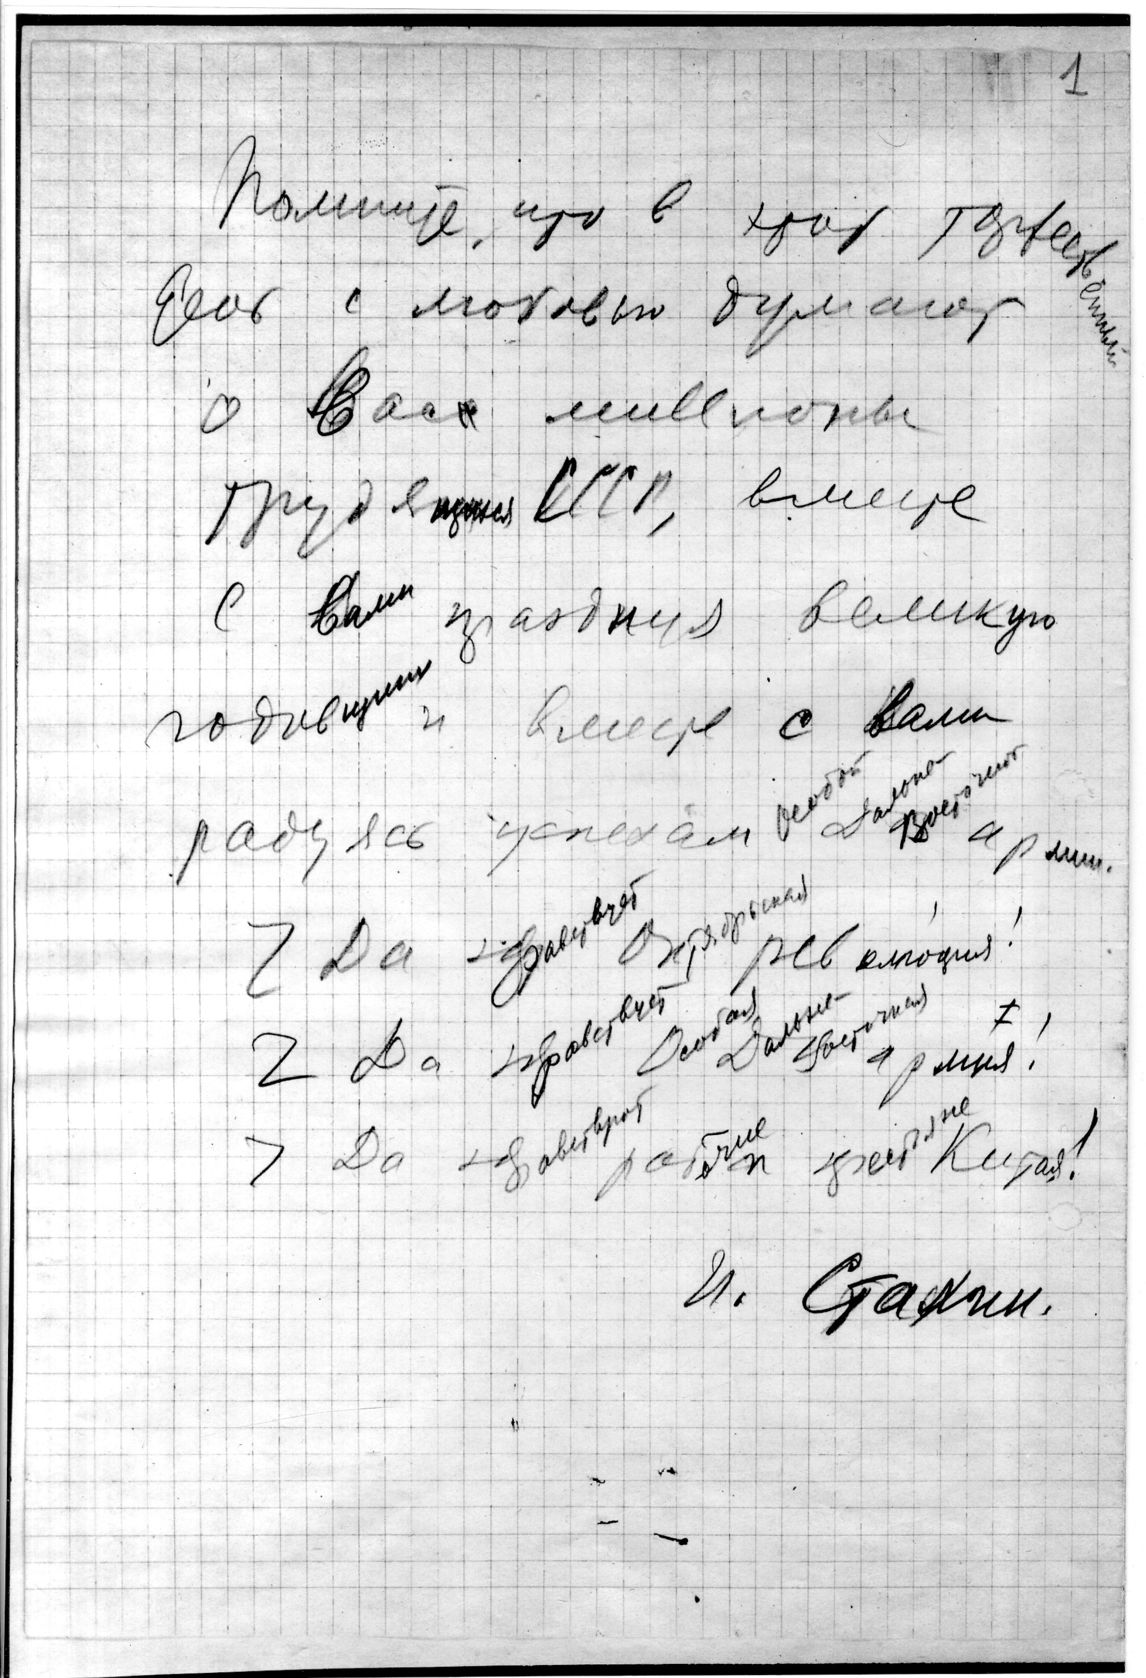 1
Помните, что в этот торжественный
день с любовью думают
о Вас миллионы
трудящихся СССР, вместе
с Вами празднуя великую
годовщину и вместе с Вами
радуясь успехам Особой Дальне-Восточной армии.
Да здравствует Октябрьская революция!
Да здравствует Особая Дальне-Восточная армия!
Да здравствуют рабочие и крестьяне Китая!
И. Сталин.